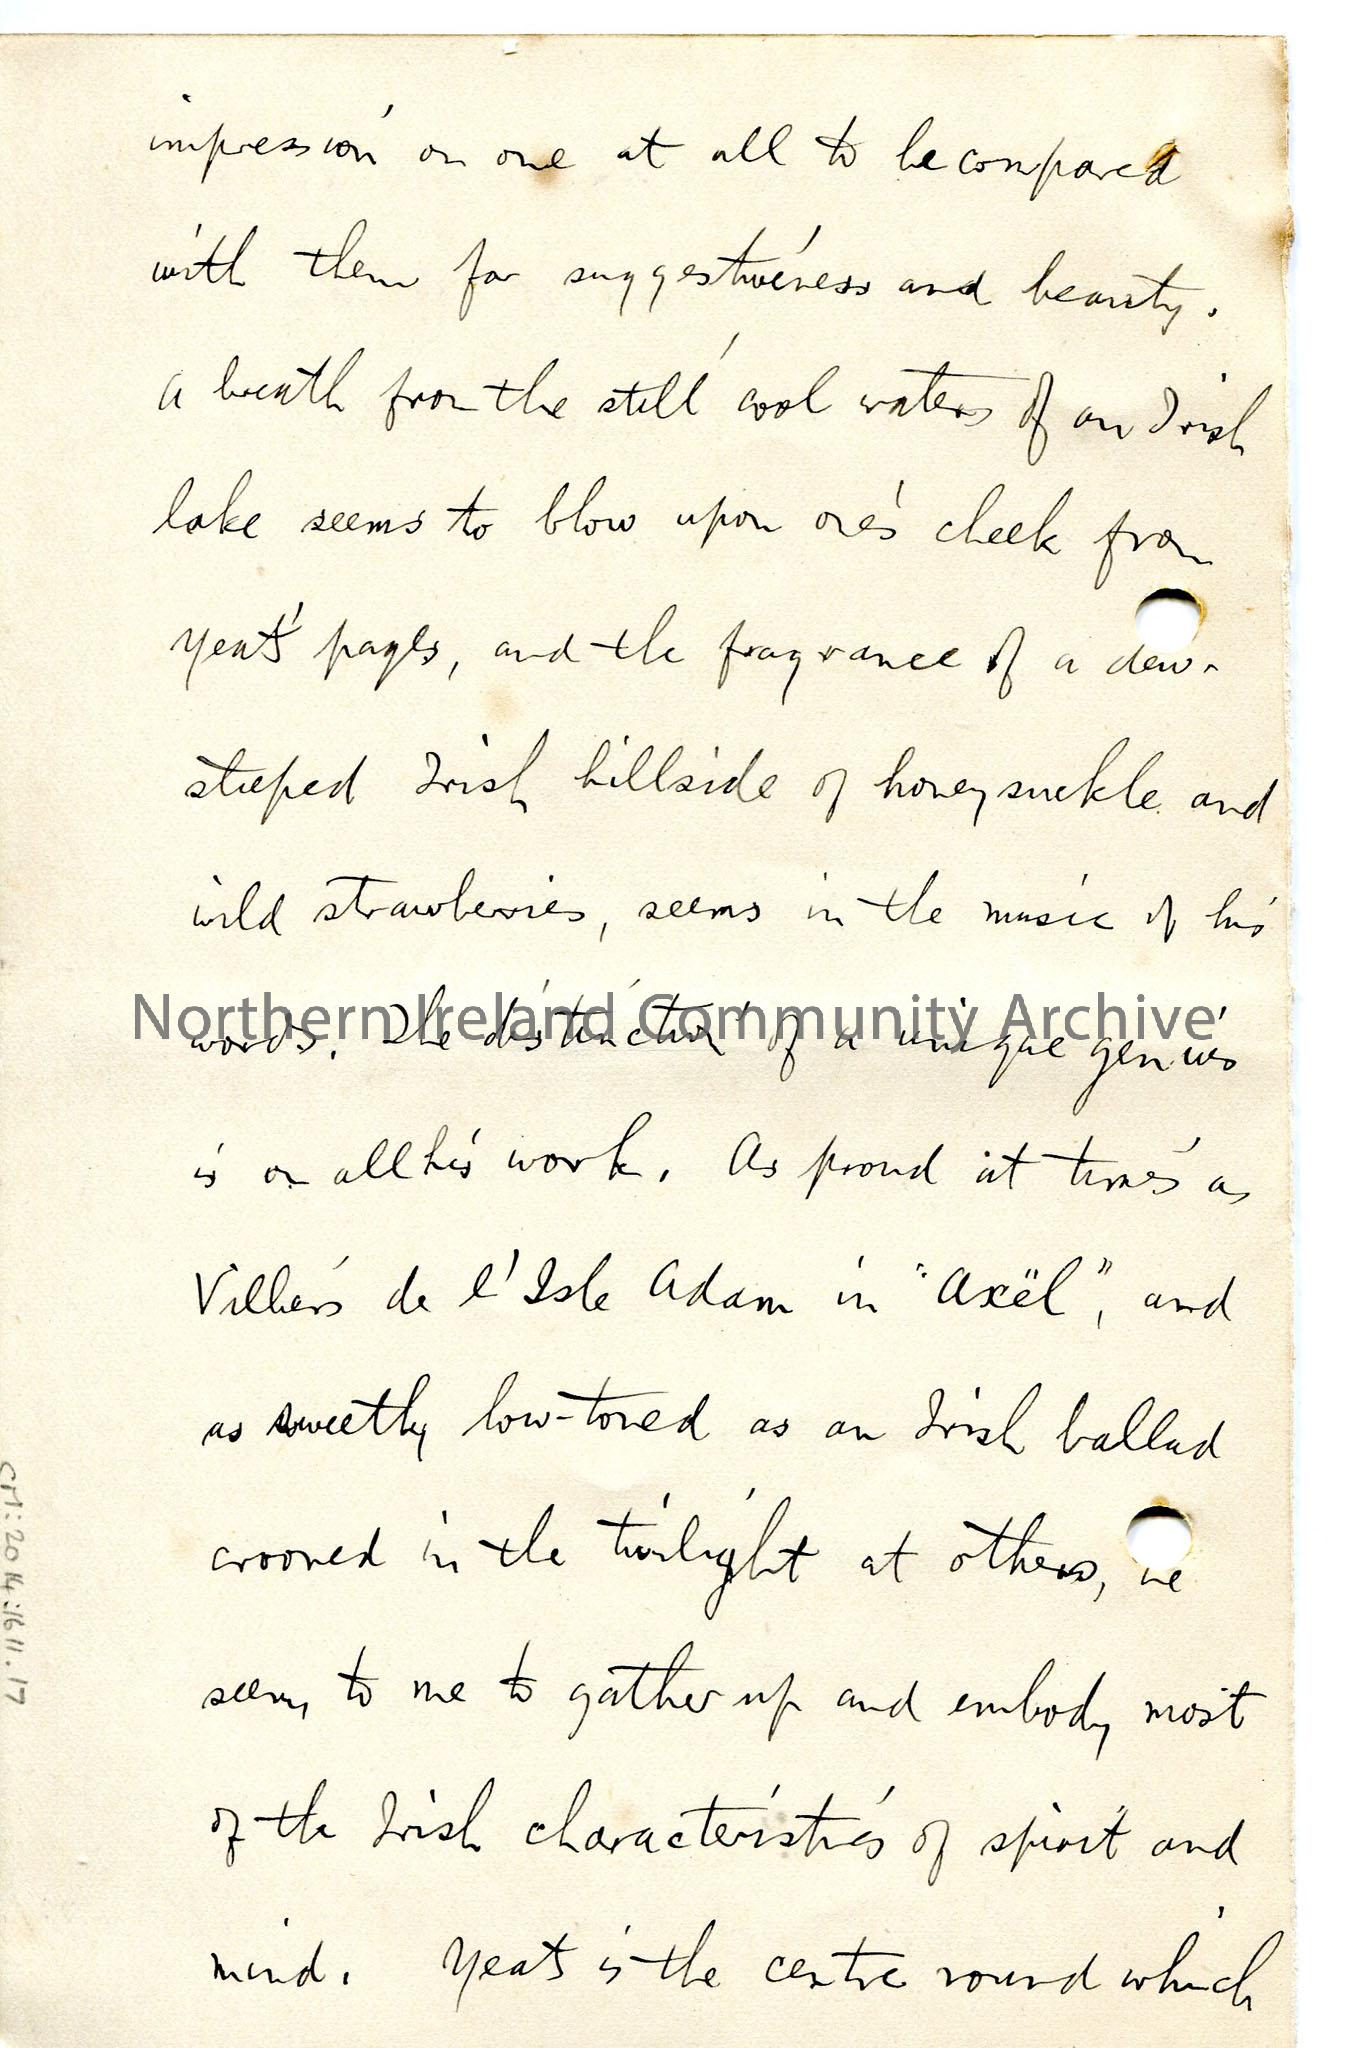 impression on one at all to be compared
with them for suggestiveness and beauty.
A breath from the still cool waters of an Irish
lake seems to blow upon one's cheek from
Yeats' pages, and the fragrance of a dew-
steeped Irish hillside of honeysuckle and
wild strawberries, seems in the music of his
words. The distinction of a unique genius
Northern Ireland Community Archive
is on all his work. As proud at times as
Villiers de l'Isle Adam in "Axël", and
as sweetly low-toned as an Irish ballad
crooned in the twilight at others, he
seems to me to gather up and embody most
of the Irish characteristics of spirit and
mind. Yeats is the centre round which
CM:2014:1611.17